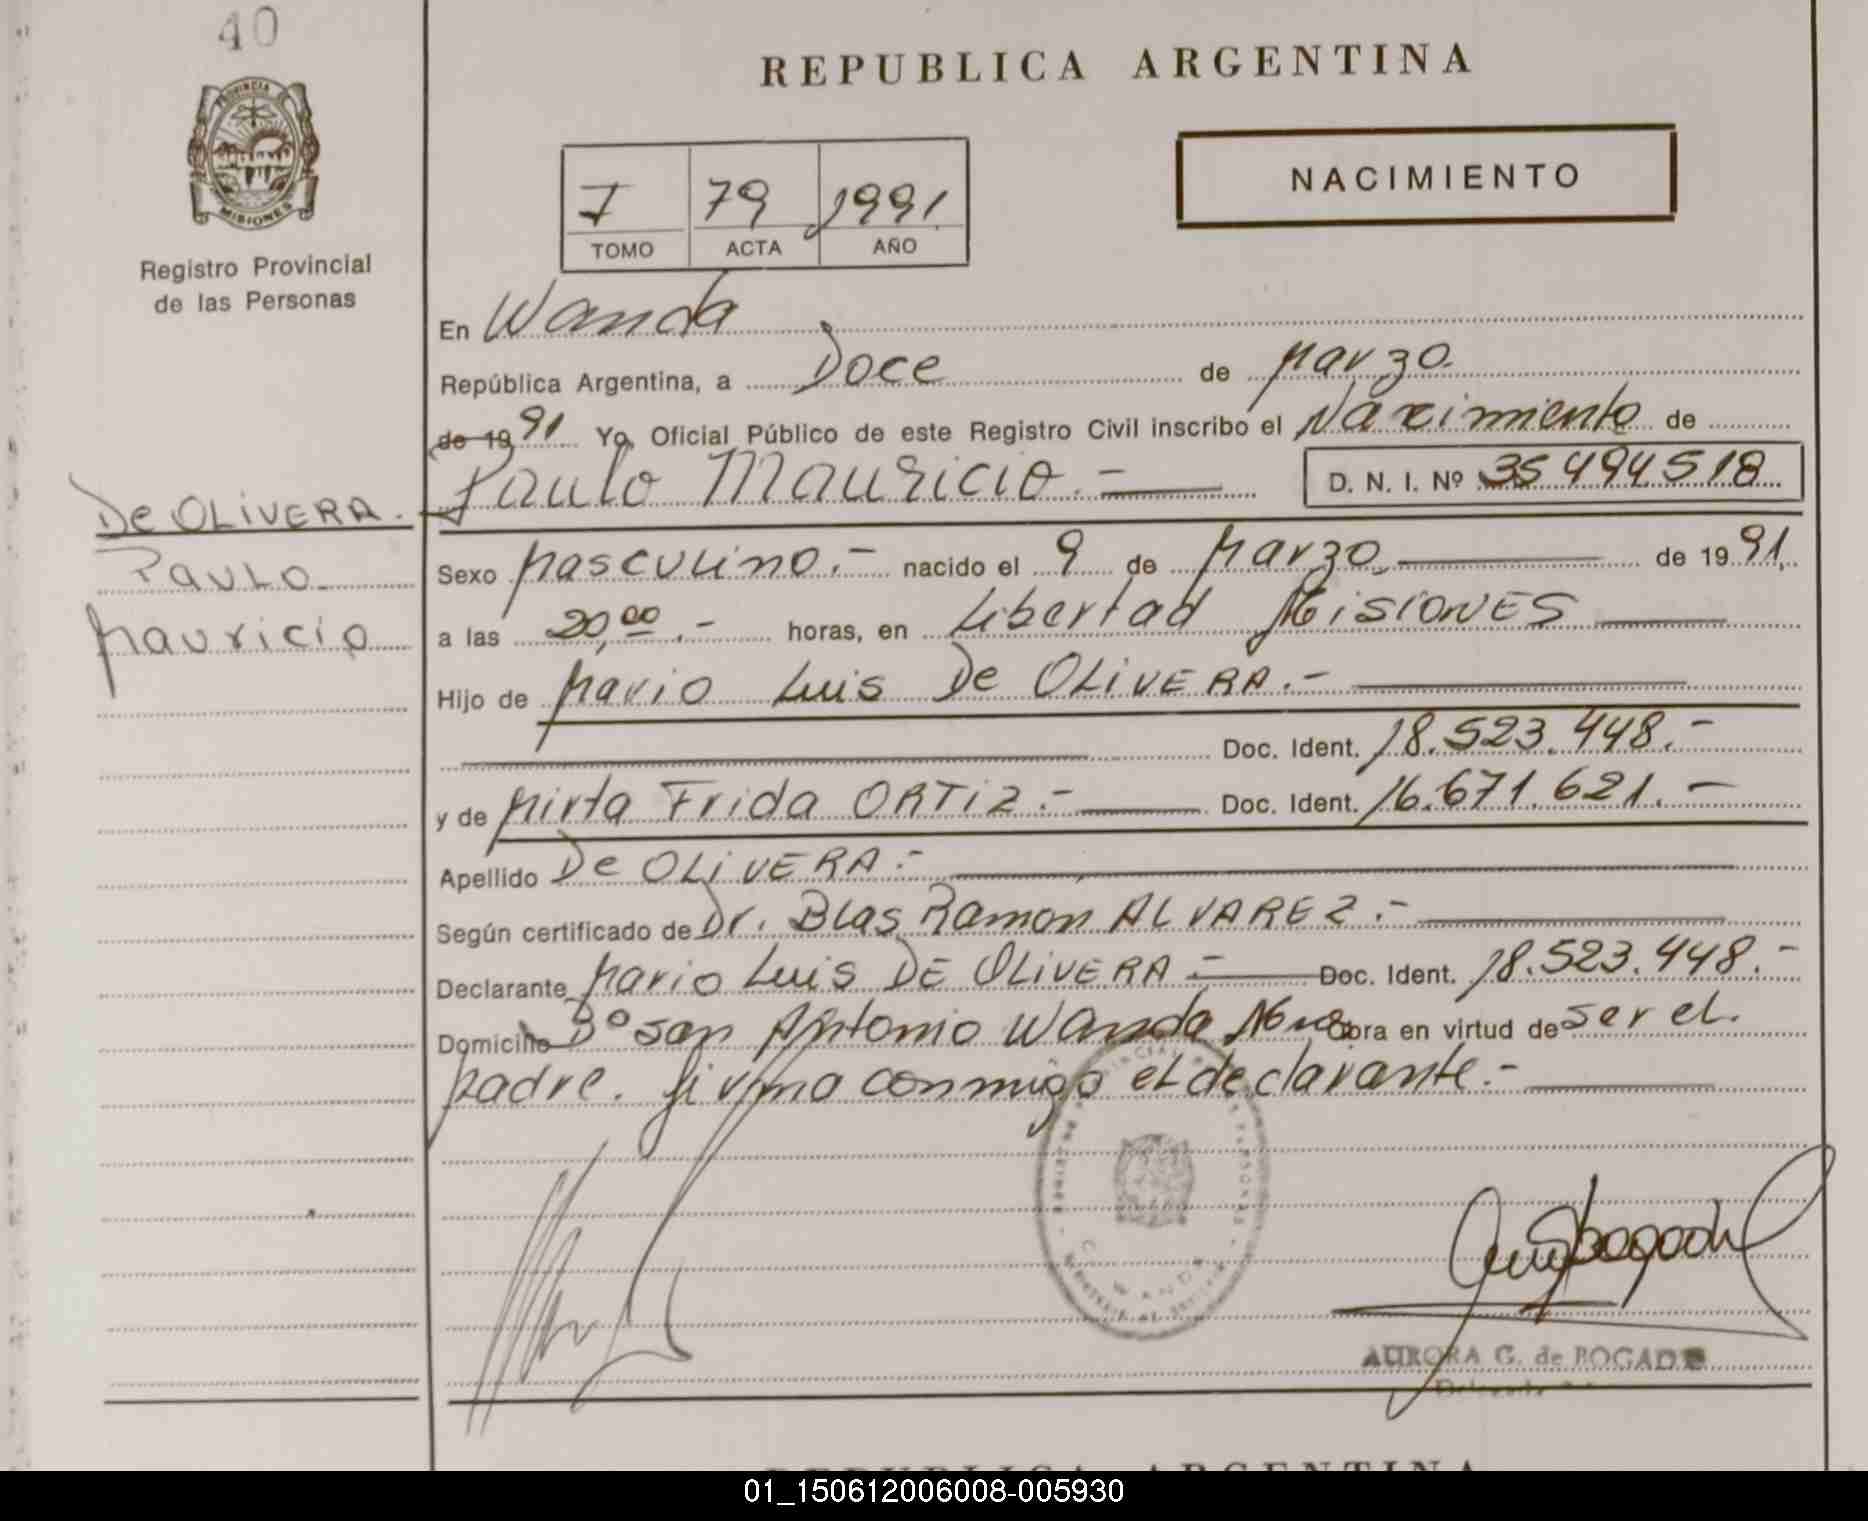 40
REPUBLICA ARGENTINA
PROVINCIA DE
MISIONES
Registro Provincial
de las Personas
NACIMIENTO
I 79 1991
TOMO ACTA AÑO
En Wanda
República Argentina, a Doce de Marzo.
de 19 91 Yo, Oficial Público de este Registro Civil inscribo el Nacimiento de
Paulo Mauricio.— D. N. I. Nº 35494518
De OLIVERA.
Paulo
Mauricio
Sexo Masculino.- nacido el 9 de Marzo de 19 91,
a las 20,00.- horas, en Libertad MISIONES
Hijo de Mario Luis De OLIVERA.-
Doc. Ident. 18.523.448.-
y de Mirta Frida ORTIZ.- Doc. Ident. 16.671.621.-
Apellido De OLIVERA.-
Según certificado de Dr. Blas Ramon ALVAREZ.-
Declarante Mario Luis DE OLIVERA - Doc. Ident. 18.523.448.-
Domicilio Bº San Antonio Wanda Mnes Obra en virtud de ser el.
padre. firma conmigo el declarante.-
WANDA
AURORA G. de BOGADO
REPUBLICA ARGENTINA
01_150612006008-005930